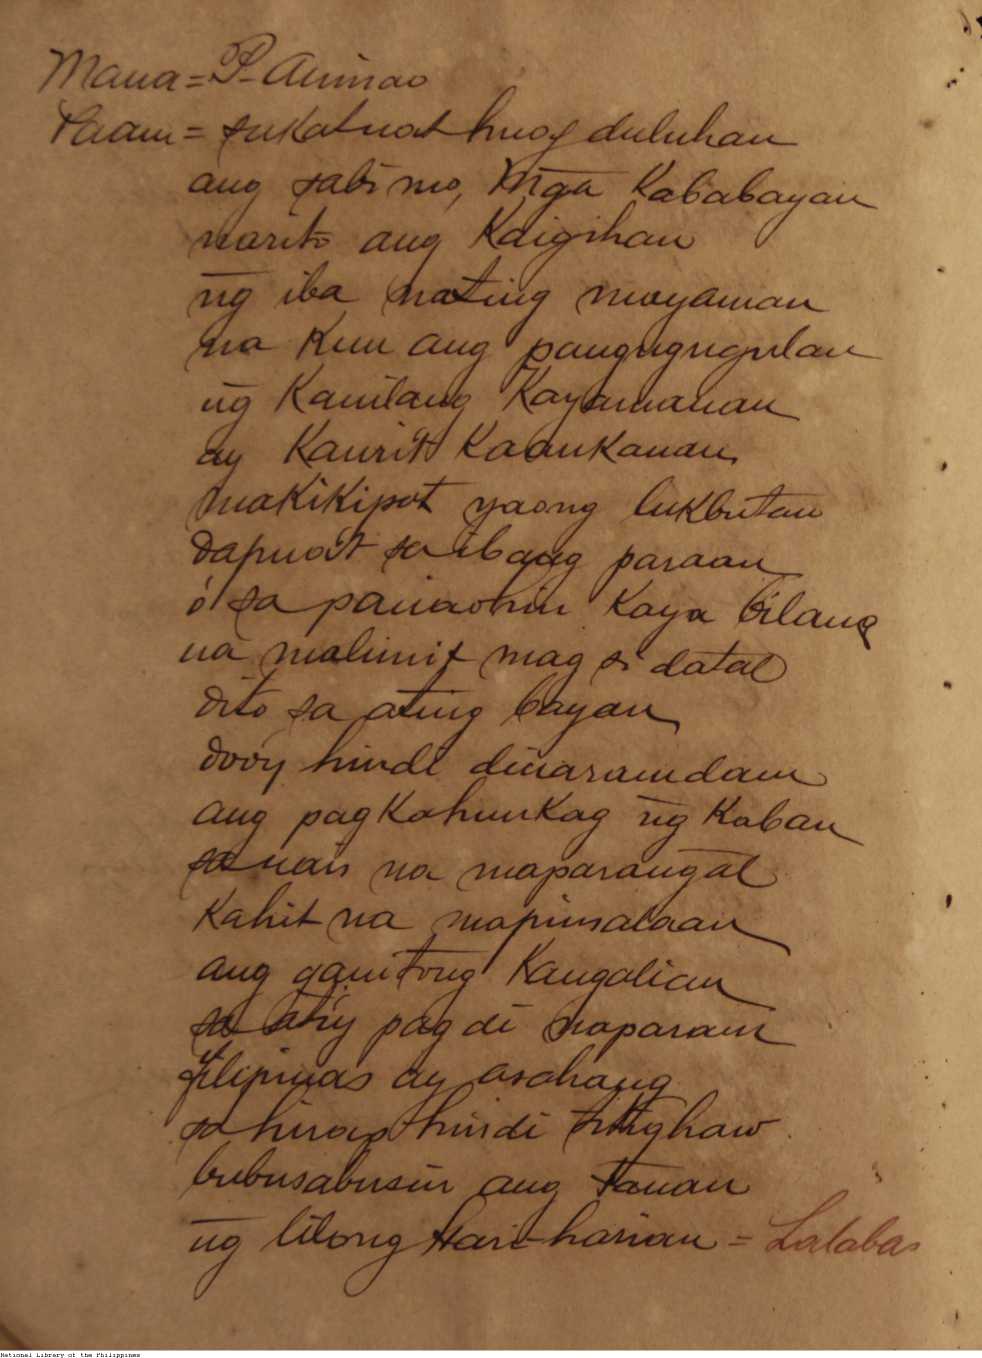 Mana = P- Animao
Paam = sukat nat huag duluhan
ang sabi mo, Mga Kababayan
narito ang Kaigihan
n̄g iba nating mayaman
na Kun ang pangugugulan
n̄g Kanilang Kayamanan
ay Kaurit Kaankanan
makikipot yaong lukbutan
dapuat sa ibang paraan
ó sa panaohin Kaya bilang
na malimit mag si datal
dito sa ating bayan
dooy hindi dinaramdam
ang pagkahunkag n̄g Kaban
sa nais na maparan̄gal
Kahit na mapinsalaan
ang ganitong Kaugalian
sa atiy pag di naparam
filipinas ay asahang
sa hirap hindi tityhaw
bubusabusin ang tanan
n̄g lilong Hari-harian = Lalabas
National Library of the Philippines